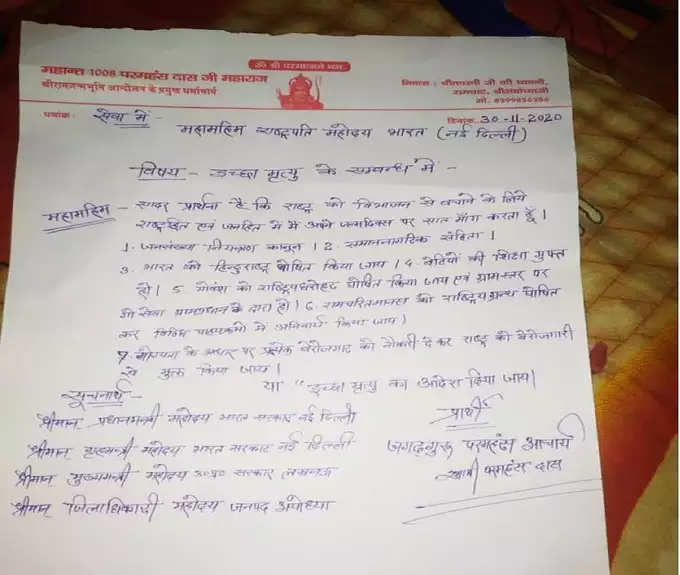 ॐ श्री परमात्मने नमः
महान्त 1008 परमहंस दास जी महाराज
श्रीरामजन्मभूमि आन्दोलन के प्रमुख धर्माचार्य
निवास : श्रीतपस्वी जी की छावनी,
रामघाट, श्रीअयोध्याजी
मो.
पत्रांक: सेवा में - दिनांक 30-11-2020
महामहिम राष्ट्रपति महोदय भारत (नई दिल्ली)
विषय - इच्छा मृत्यु के सम्बन्ध में -
महामहिम - सादर प्रार्थना है कि राष्ट्र को विभाजन से बचाने के लिये
राष्ट्रहित एवं जनहित में मैं अपने जन्मदिवस पर सात मांग करता हूँ।
1. जनसंख्या नियन्त्रण कानून। 2. समाननागरिक संहिता।
3. भारत को हिन्दुराष्ट्र घोषित किया जाय। 4. बेटियों की शिक्षा मुफ्त
हो। 5. गोवंश को राष्ट्रियधरोहर घोषित किया जाय एवं ग्रामस्तर पर
गो सेवा ग्रामप्रधान के द्वारा हो। 6. रामचरितमानस को राष्ट्रियग्रन्थ घोषित
कर विविध पाठ्यक्रमो में अनिवार्य किया जाय।
7. योग्यता के आधार पर प्रत्येक बेरोजगार को नौकरी देकर राष्ट्र को बेरोजगारी
से मुक्त किया जाय।
या "इच्छा मृत्यु का आदेश दिया जाय।
सूचनार्थ -
श्रीमान् प्रधानमन्त्री महोदय भारत सरकार नई दिल्ली
श्रीमान् गृहमन्त्री महोदय भारत सरकार नई दिल्ली
श्रीमान् मुख्यमन्त्री महोदय उ०प्र० सरकार लखनऊ
श्रीमान् जिलाधिकारी महोदय जनपद अयोध्या
प्रार्थी
जगद्गुरु परमहंस आचार्य
स्वामी परमहंस दास